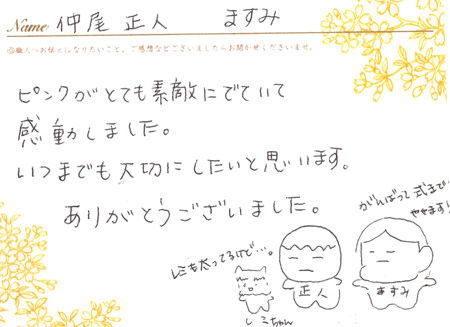 Name 仲尾 正人 ますみ
◎職人へお伝えになりたいこと、ご感想などございましたらお聞かせくださいませ。
ピンクがとても素敵にでていて
感動しました。
いつまでも大切にしたいと思います。
ありがとうございました。
がんばって式まで
やせます!
レミも太ってるけど…。
正人
ますみ
レミちゃん